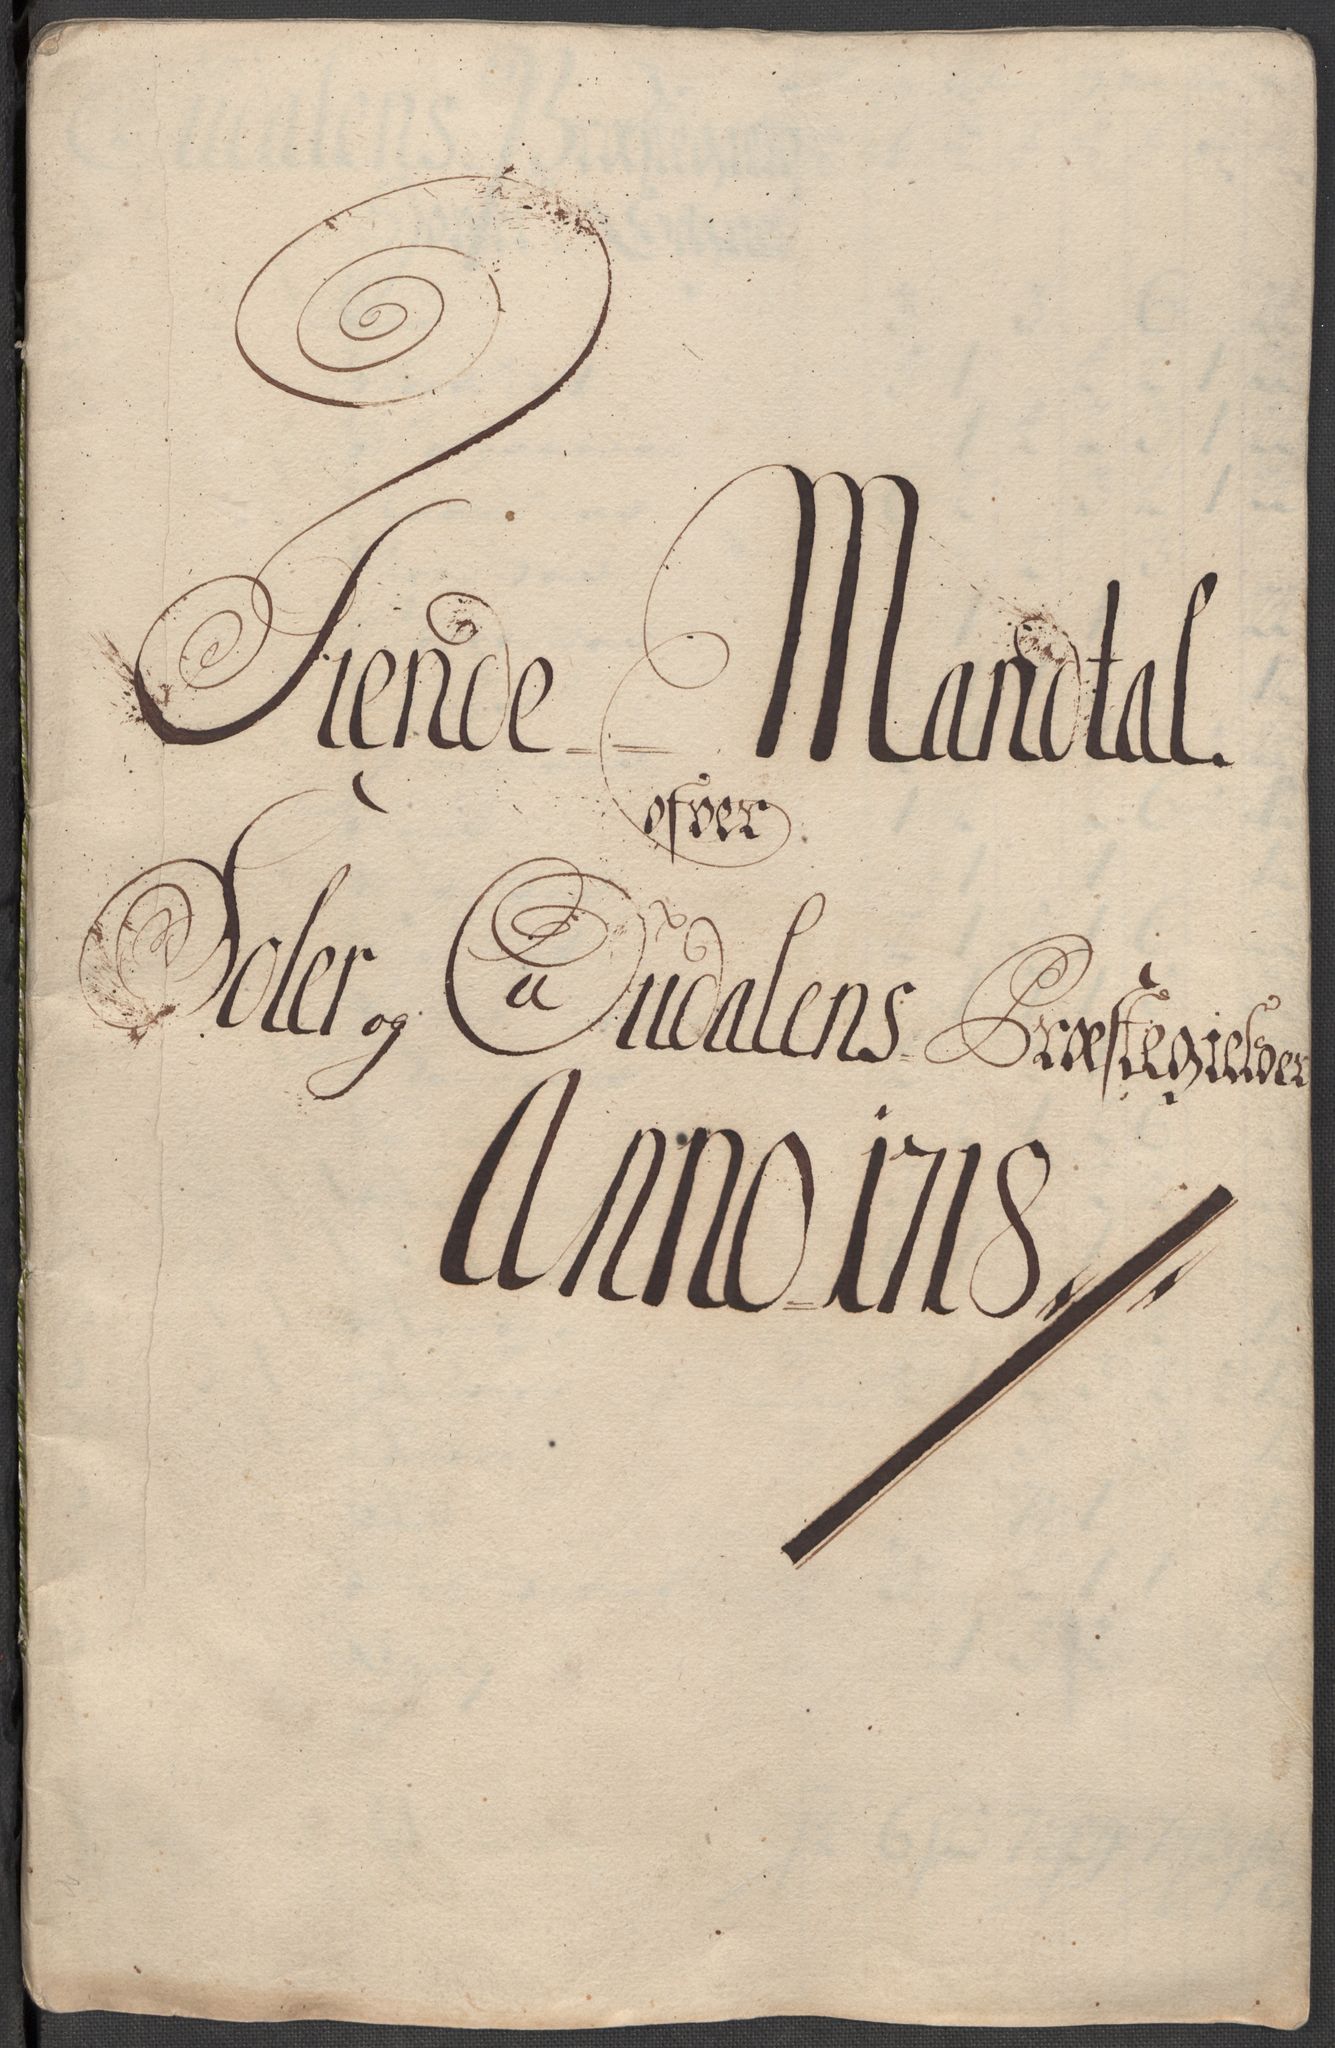 Tiende Mandtal.
ofver
Soler og Oudalens Præstegielder
Anno 1718